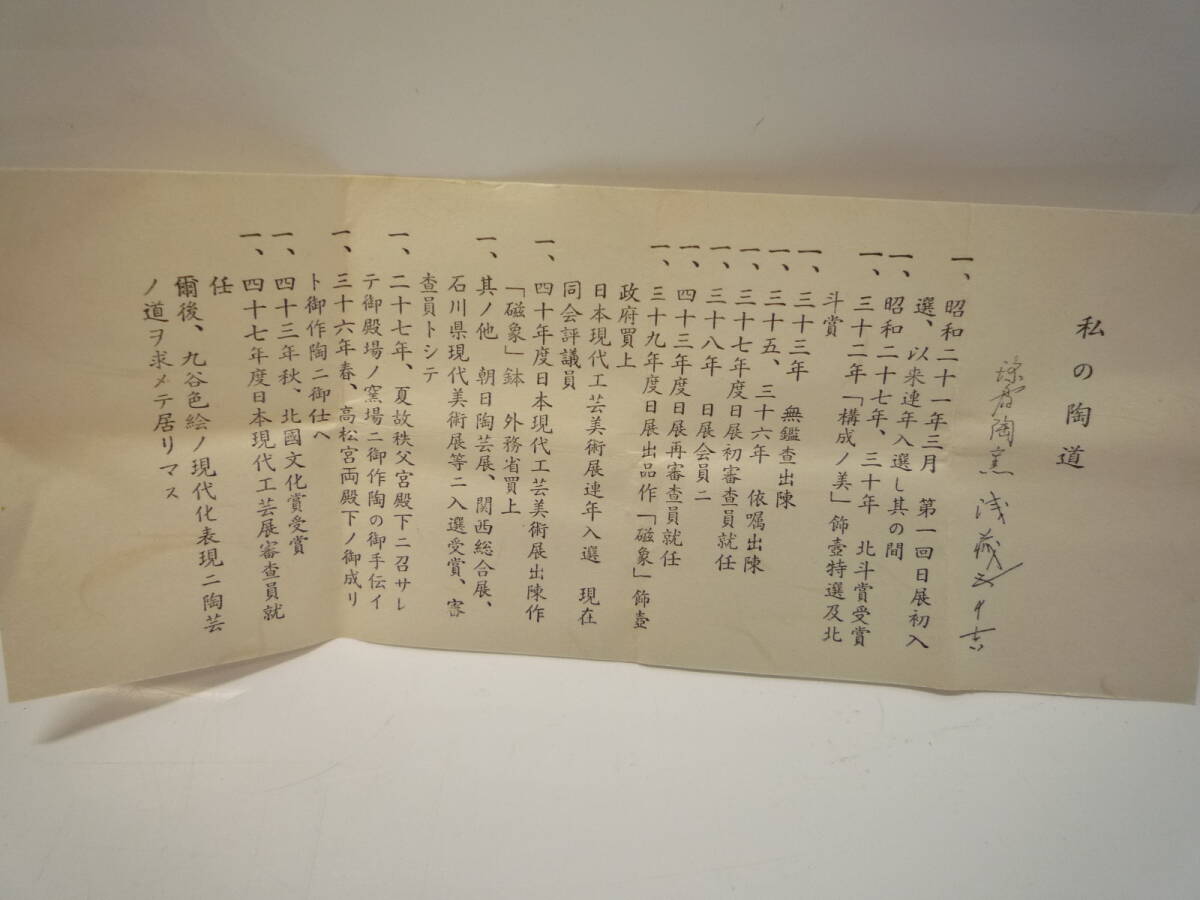 私の陶道
陶窯 浅蔵五十吉
一、昭和二十一年三月 第一回日展初入
選、以来連年入選し其の間
一、昭和二十七年、三十年 北斗賞受賞
一、三十二年「構成ノ美」飾壺特選及北
斗賞
一、三十三年 無鑑査出陳
一、三十五、三十六年 依嘱出陳
一、三十七年度日展初審査員就任
一、三十八年 日展会員ニ
一、四十三年度日展再審査員就任
一、三十九年度日展出品作「磁象」飾壺
政府買上
日本現代工芸美術展連年入選 現在
同会評議員
一、四十年度日本現代工芸美術展出陳作
「磁象」鉢 外務省買上
一、其ノ他 朝日陶芸展、関西総合展、
石川県現代美術展等ニ入選受賞、審
査員トシテ
一、二十七年、夏故秩父宮殿下ニ召サレ
テ御殿場ノ窯場ニ御作陶の御手伝イ
一、三十六年春、高松宮両殿下ノ御成リ
ト御作陶ニ御仕ヘ
一、四十三年秋、北國文化賞受賞
一、四十七年度日本現代工芸展審査員就
任
爾後、九谷色絵ノ現代化表現ニ陶芸
ノ道ヲ求メテ居リマス